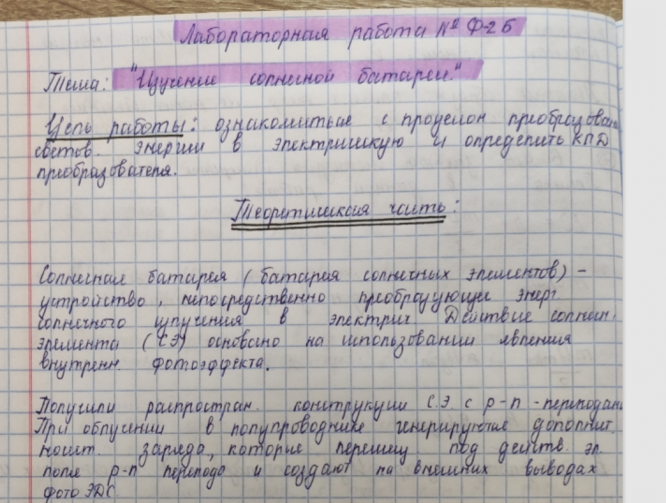 Лабораторная работа № Ф-2б
Тема: "Изучение солнечной батареи."
Цель работы: ознакомиться с процессом преобразован
светов. энергии в электрическую и определить КПД
преобразователя.
Теоретическая часть:
Солнечная батарея (батарея солнечных элементов) -
устройство, непосредственно преобразующие энерг
солнечного излучения в электрич Действие солнечн.
элемента (СЭ) основано на использовании явления
внутренн. фотоэффекта.
Получили распростран. конструкции СЭ с p-n-переходами
При облучении в полупроводнике генерируются дополнит.
носит. заряда, которые перемещ под действ. эл.
поля p-n перехода и создают на внешних выводах
фотоЭДС